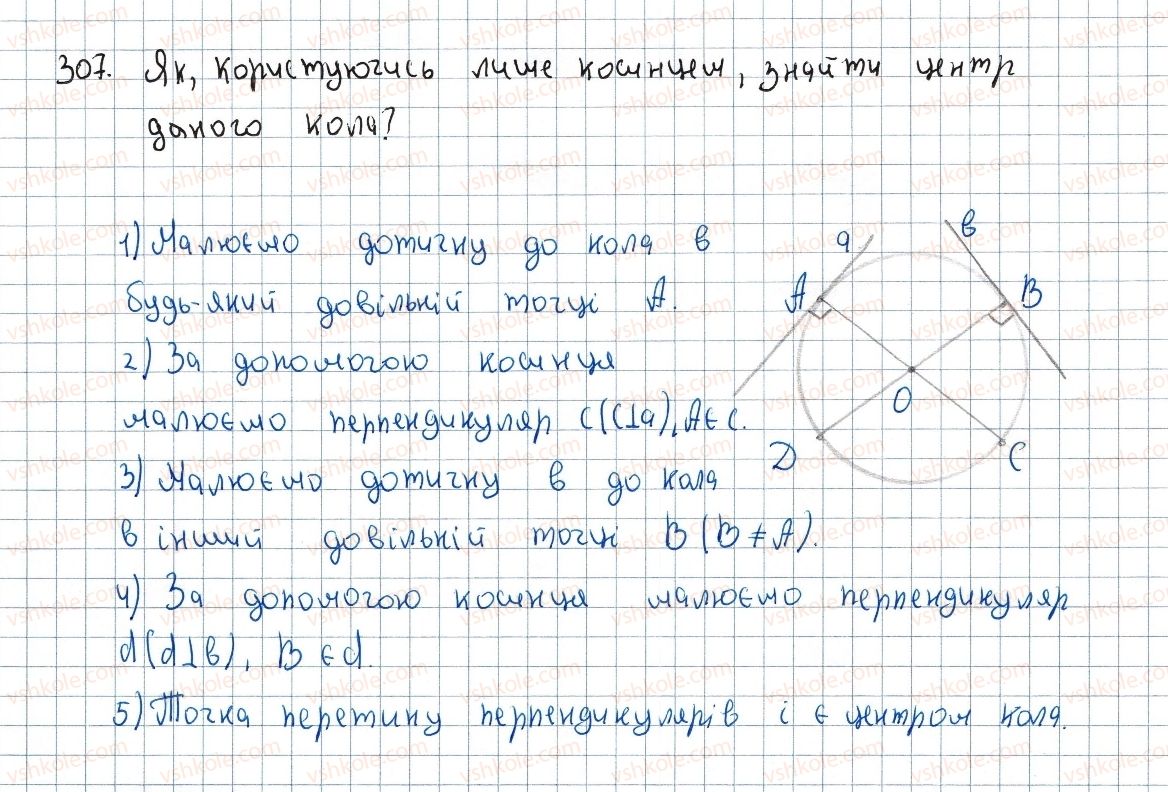 307. Як, користуючись лише косинцем, знайти центр
даного кола?
1) Малюємо дотичну до кола в
будь-який довільній точці A.
2) За допомогою косинця
малюємо перпендикуляр c(c⊥a), A∈c.
3) Малюємо дотичну в до кола
в іншій довільній точці B (B≠A).
4) За допомогою косинця малюємо перпендикуляр
d(d⊥в), B∈d.
5) Точка перетину перпендикулярів і є центром кола.
a
в
A
B
O
D
C
vshkole.com